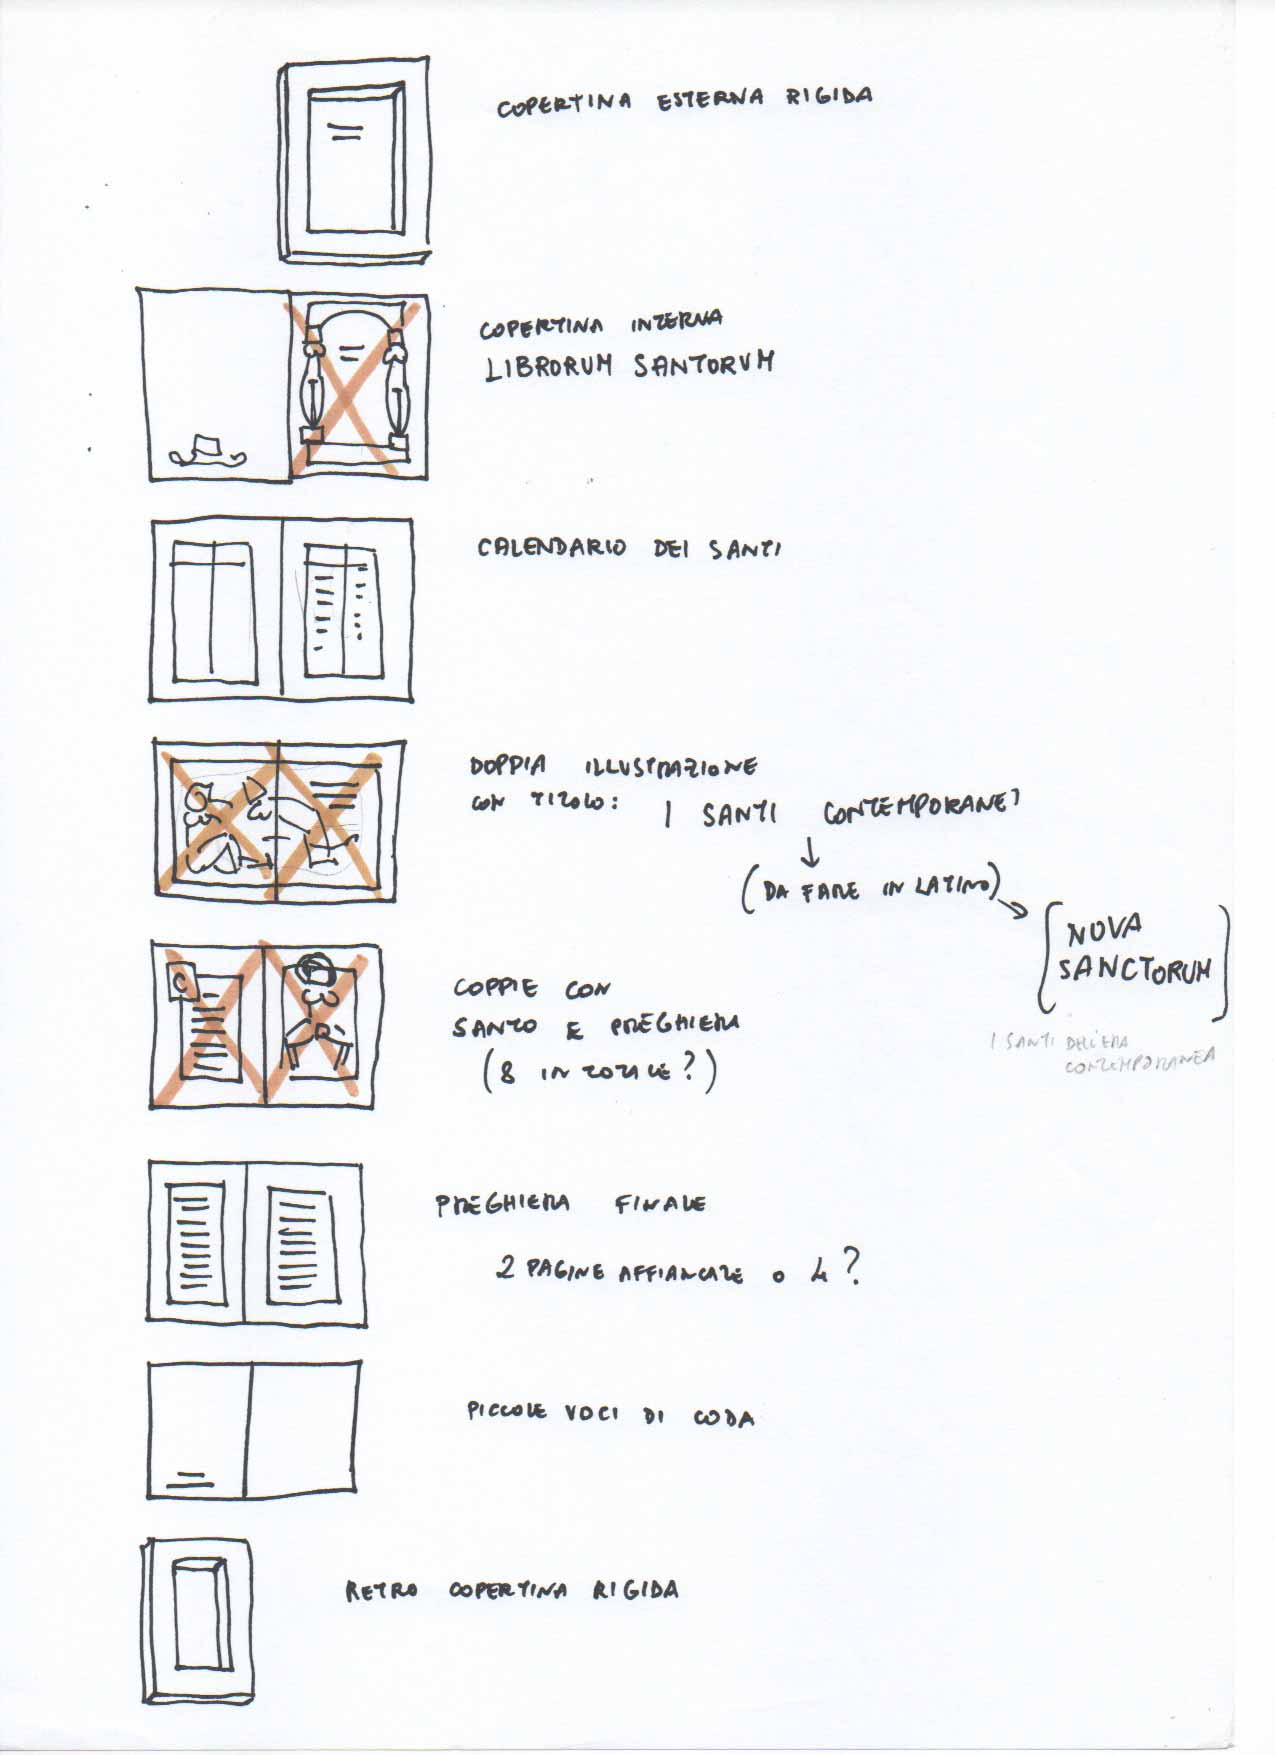 COPERTINA ESTERNA RIGIDA
COPERTINA INTERNA
LIBRORUM SANTORUM
CALENDARIO DEI SANTI
DOPPIA ILLUSTRAZIONE
CON TITOLO: I SANTI CONTEMPORANEI
(DA FARE IN LATINO)
[NOVA
SANCTORUM]
I SANTI DELL'ERA
CONTEMPORANEA
C
COPPIE CON
SANTO E PREGHIERA
(8 IN TOTALE?)
PREGHIERA FINALE
2 PAGINE AFFIANCATE O 4?
PICCOLE VOCI DI CODA
RETRO COPERTINA RIGIDA